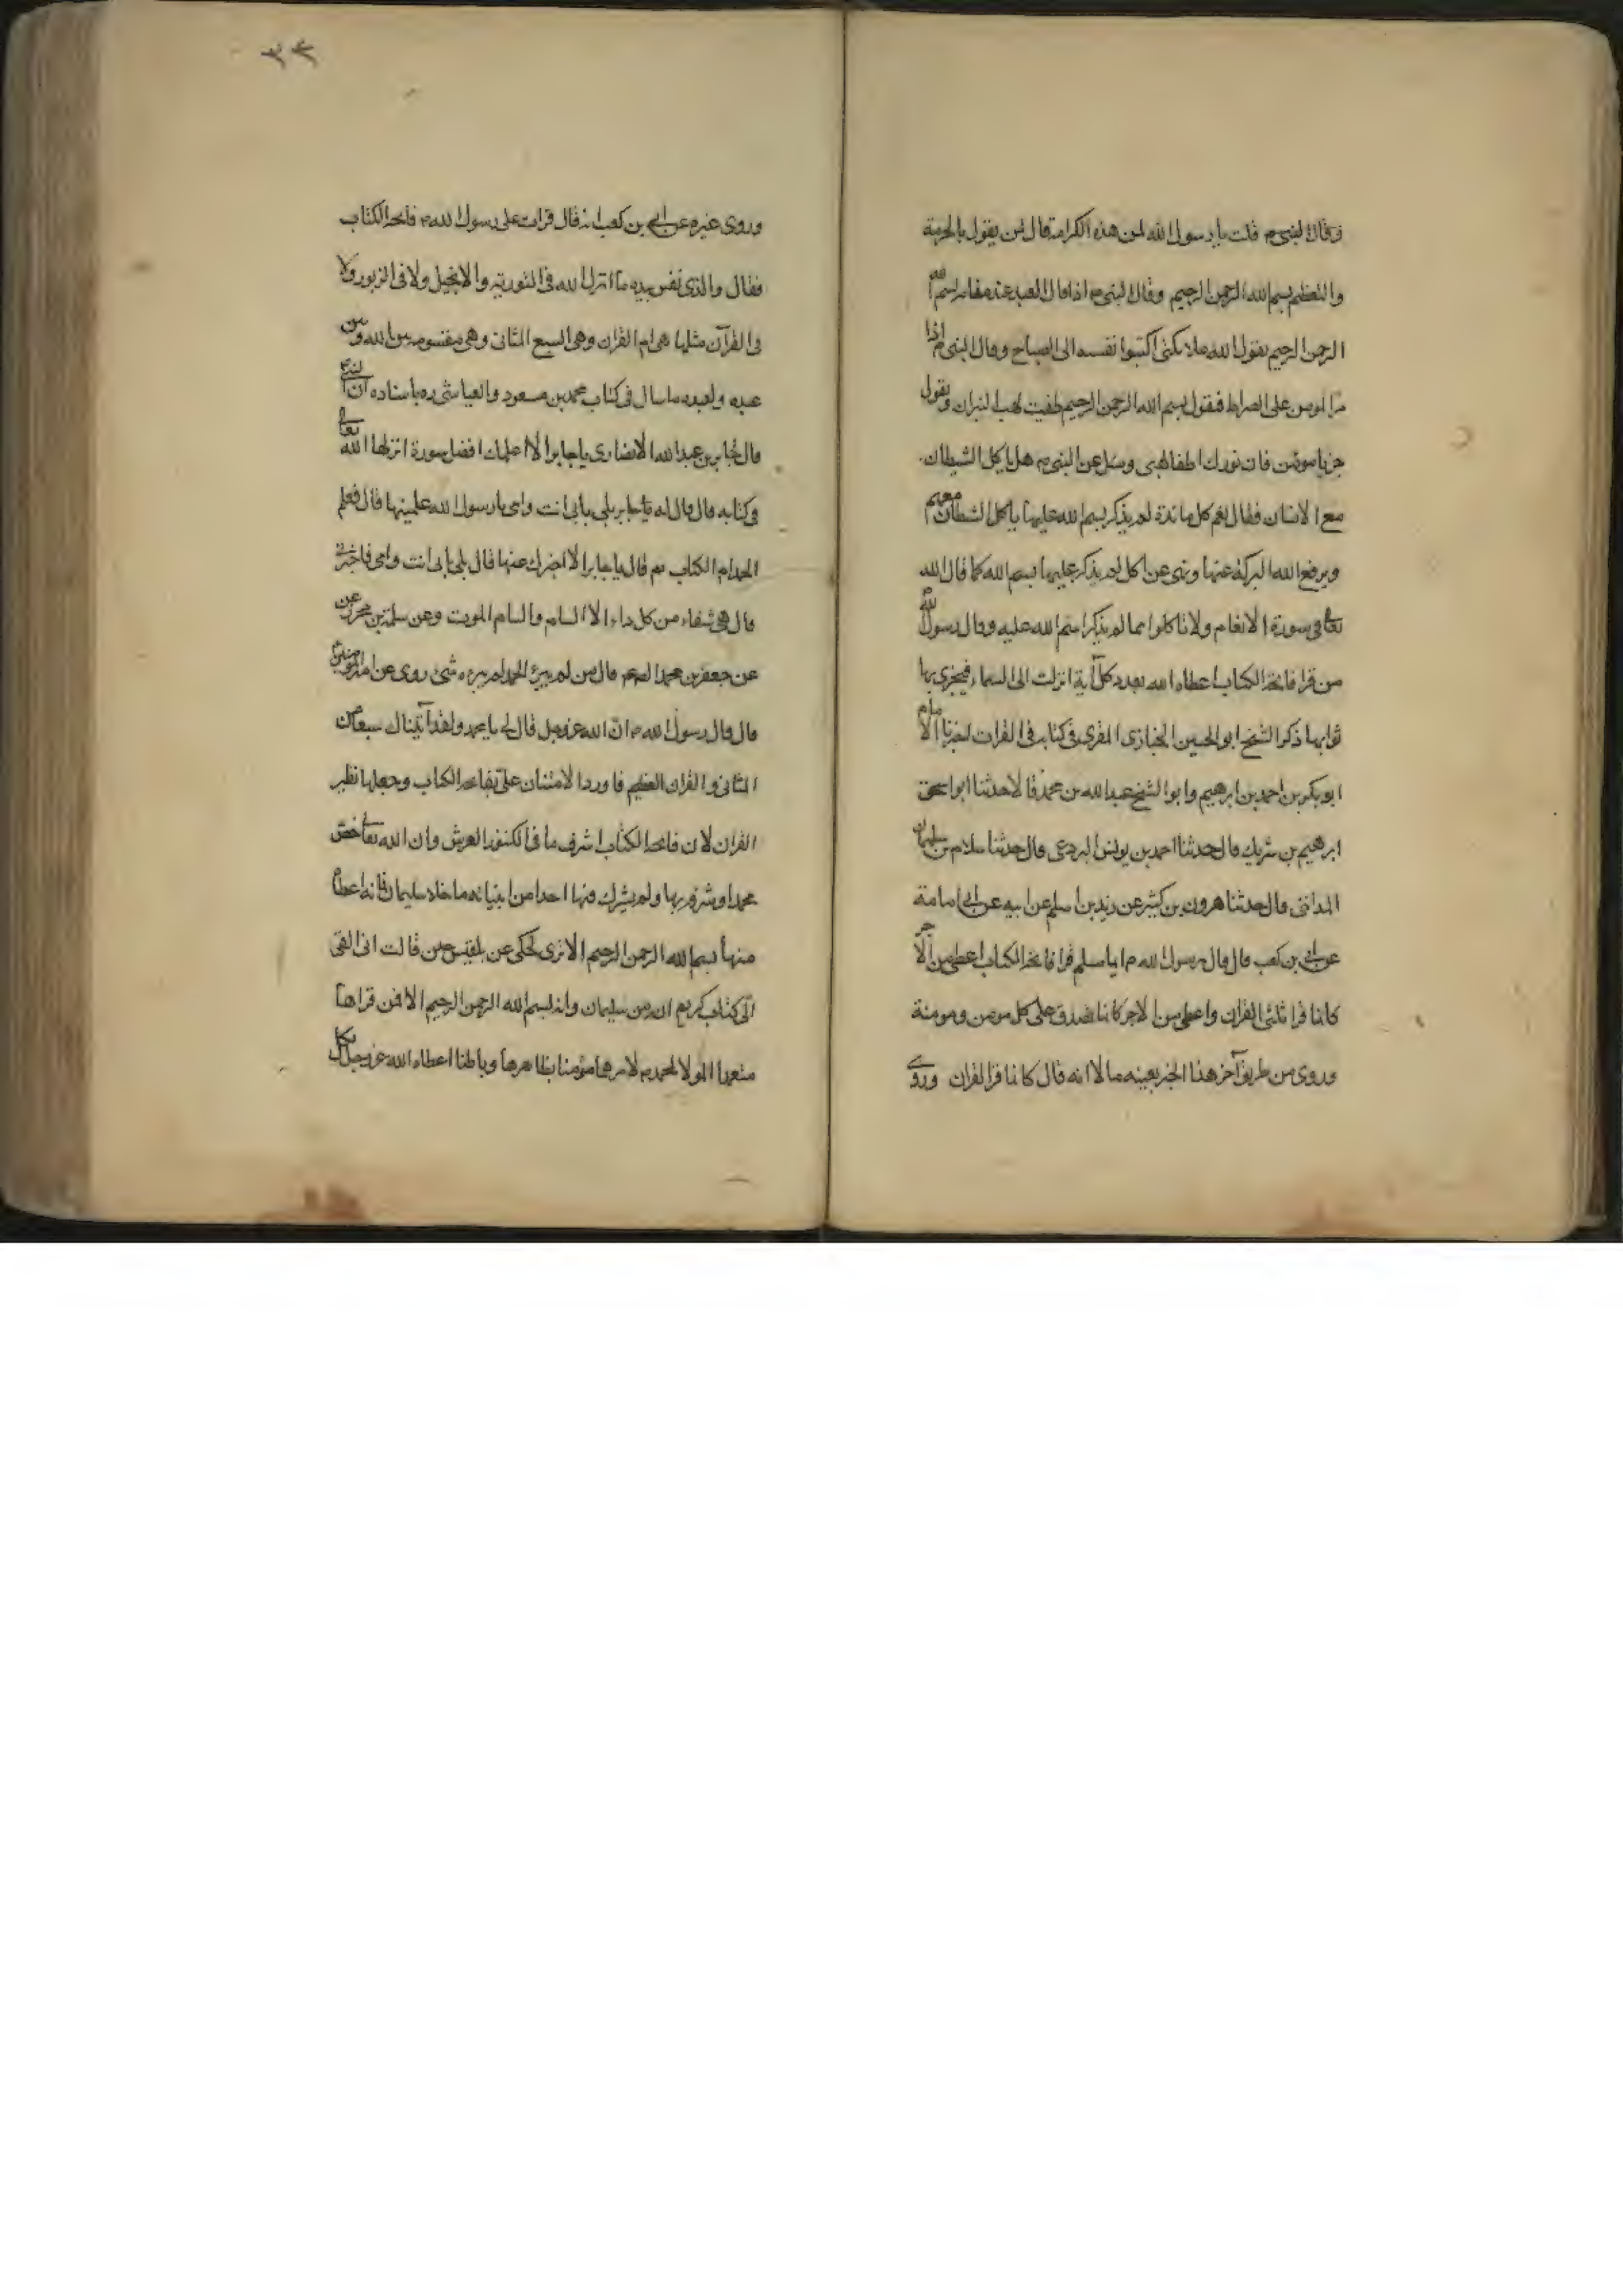 وقال النبي م قلت يا رسول الله لمن هذه الكرامة قال لمن يقول بالحرمة
والتعظيم بسم الله الرحمن الرحيم وقال النبي م اذا قال العبد عند منامه بسم الله
الرحمن الرحيم يقول الله ملائكتى اكتبوا نفسه الى الصباح وقال النبي م اذا
مر المومن على الصراط فيقول بسم الله الرحمن الرحيم طفيت لهب النيران ويقول
جز يا مومن فان نورك اطفا لهبى وسئل عن النبي م هل ياكل الشيطان
مع الانسان فقال نعم كل مائدة لم يذكر بسم الله عليها ياكل الشيطان معهم
ويرفع الله البركة عنها ونهى عن اكل لم يذكر عليها بسم الله كما قال الله
تعالى فى سورة الانعام ولا تاكلوا مما لم يذكر اسم الله عليه وقال رسول الله
من قرا فاتحة الكتاب اعطاه الله بعدد كل آية انزلت الى السماء فيجزى بها
ثوابها ذكر الشيخ ابو الحسين الخبازى المقرى فى كتابه فى القرات اخبرنا الامام
ابو بكر بن احمد بن ابرهيم وابو الشيخ عبد الله بن محمد قالا حدثنا ابو اسحق
ابرهيم بن شريك قال حدثنا احمد بن يونس اليربوعى قال حدثنا سلام بن سليمان
المدائنى قال حدثنا هرون بن كثير عن زيد بن اسلم عن ابيه عن ابى امامة
عن ابى بن كعب قال قال رسول الله م ايما مسلم قرا فاتحة الكتاب اعطى من الاجر
كانما قرا ثلثى القران واعطى من الاجر كانما تصدق على كل مومن ومومنة
وروى من طريق آخر هذا الخبر بعينه الا انه قال كانما قرا القران وروى
٣٣
وروى غيره عن ابى بن كعب انه قال قرات على رسول الله م فاتحة الكتاب
فقال والذى نفسى بيده ما انزل الله فى التورية والانجيل ولا فى الزبور ولا
فى القرآن مثلها هى ام القران وهى السبع المثانى وهى مقسومة بين الله وبين
عبده ولعبده ما سال فى كتاب محمد بن مسعود والعياشى ره باسناده ان النبى
قال لجابر بن عبد الله الانصارى يا جابر الا اعلمك افضل سورة انزلها الله تعالى
فى كتابه قال قال له جابر بلى بابى انت وامى يا رسول الله علمنيها قال فعلمه
الحمد ام الكتاب ثم قال يا جابر الا اخبرك عنها قال بلى بابى انت وامى فاخبرنى
قال هى شفاء من كل داء الا السام والسام الموت وعن سلمة بن محرز
عن جعفر بن محمد الصادق قال من لم يبرئه الحمد لم يبره شئ روى عن امير المومنين
قال قال رسول الله م ان الله عز وجل قال لى يا محمد ولقد آتيناك سبعا من
المثانى والقران العظيم فاورد الامتنان على بفاتحة الكتاب وجعلها نظير
القران لان فاتحة الكتاب اشرف ما فى كنوز العرش وان الله تعالى خص
محمدا وشرفه بها ولم يشرك فيها احدا من انبيائه ما خلا سليمان فانه اعطاه
منها بسم الله الرحمن الرحيم الا ترى يحكى عن بلقيس حين قالت انى القى
الى كتاب كريم انه من سليمان وانه بسم الله الرحمن الرحيم الا فمن قراها
معتقدا لموالاة محمد م لامرها مؤمنا بظاهرها وباطنها اعطاه الله عز وجل بكل